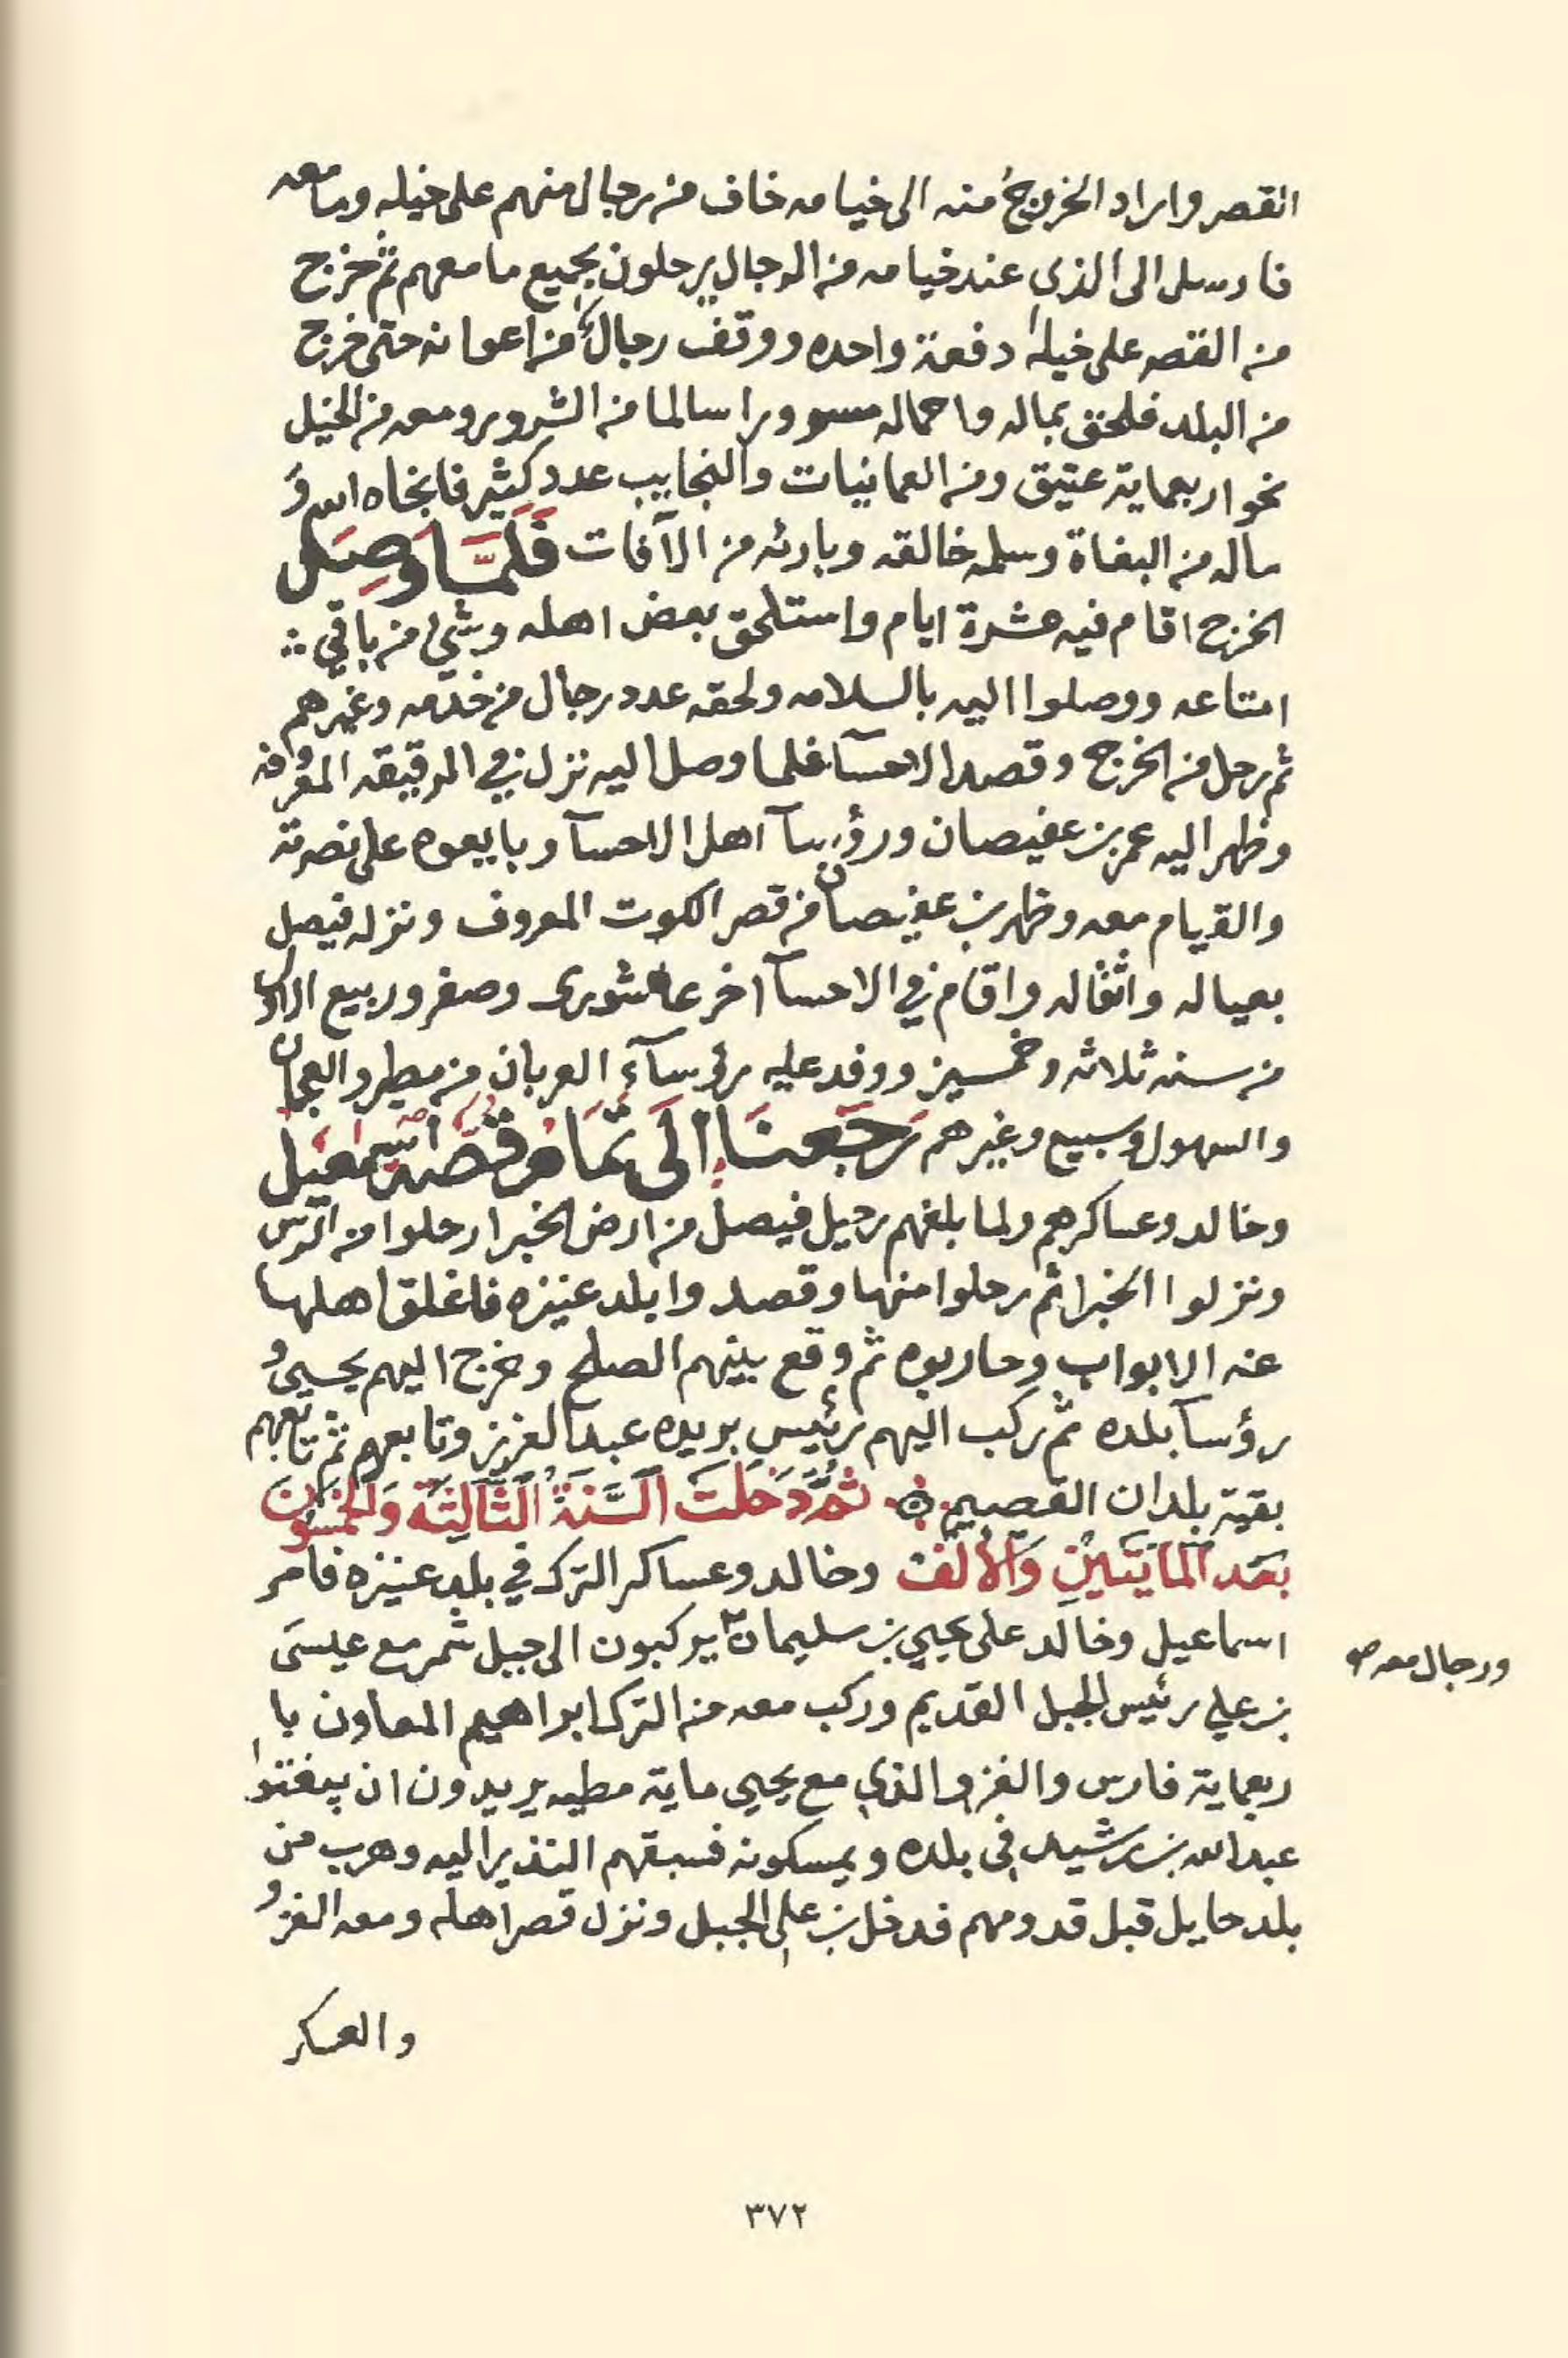 القصر واراد الخروج منه الى خيامه خاف من رجال منهم على خيله وما معه
فارسل الى الذي عند خيامه من الرجال يرحلون بجميع ما معهم ثم خرج
من القصر على خيله دفعة واحده ووقف رجال من اعوانه حتى خرج
من البلد فلحق بماله واحماله مسرورا سالما من الشرور ومعه من الخيل
نحو اربعماية عتيق ومن العمانيات والنجايب عدد كثير فانجاه الله و
ماله من البغاة وسلمه خالقه وبارئه من الآفات فَلَمَّا وَصِلَ
الخرج اقام فيه عشرة ايام واستلحق بعض اهله وشيء من باقي
امتاعه ووصلوا اليه بالسلامه ولحقه عدد رجال من خدمه وغيرهم
ثم رحل من الخرج وقصد الاحسآ فلما وصل اليه نزل في الرقيقه المعروفه
وظهر اليه عمر بن عفيصان ورؤسآ اهل الاحسآ وبايعوه على نصرته
والقيام معه وظهر بن عفيصان من قصر الكوت المعروف ونزله فيصل
بعياله واثقاله واقام في الاحسآ اخر عاشورى وصفر وربيع الاول
من سنه ثلاثه وخمسين ووفد عليه رؤسآء العربان من مطير والعجمان
والسهول وسبيع وغيرهم رَجَعنَا الَى تَمَام قصّة اسمعيل
وخالد وعساكرهم ولما بلغهم رحيل فيصل من ارض الخبرا رحلوا من الرس
ونزلوا الخبرا ثم رحلوا منها وقصدوا بلد عنيزه فاغلق اهلها
عنه الابواب وحاربوه ثم وقع بينهم الصلح وخرج اليهم يحيى و
رؤسآ بلده ثم ركب اليهم رئيس بريده عبدالعزيز وتابعهم ثم تابعهم
بقية بلدان القصيم ۞ ثُمَّ دَخَلَت السَّنَةُ الثَّالِثَة وَالخمسُونَ
بَعَد المَايَتَينِ وَالأَلف وخالد وعساكر الترك في بلد عنيزه فامر
اسماعيل وخالد على يحيى بن سليمان يركبون الى جبل شمر مع عيسَى
ورجال معه صح
بن علي رئيس الجبل القديم وركب معه من الترك ابراهيم المعاون با
ربعماية فارس والغزو الذي مع يحيى ماية مطيه يريدون ان يبغتوا
عبدالله بن رشيد في بلده ويمسكونه فسبقهم النذير اليه وهرب من
بلد حايل قبل قدومهم فدخل بن علي الجبل ونزل قصر اهله ومعه الغزو
والعسكر
٣٧٢